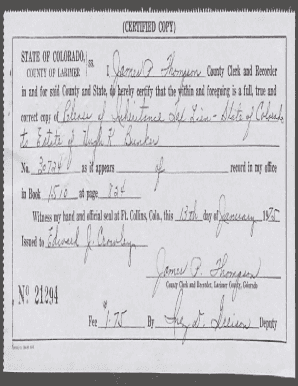 (CERTIFIED COPY)
STATE OF COLORADO,
COUNTY OF LARIMER
SS.
I James P. Thompson County Clerk and Recorder
in and for said County and State, do hereby certify that the within and foregoing is a full, true and
correct copy of Release of Inheritance Tax Lien - State of Colorado
to Estate of Hugh R.
No. 30724 as it appears of record in my office
in Book 1510 at page 824
Witness my hand and official seal at Ft. Collins, Colo., this 13th day of January 1975
Issued to Edward J. Crowley
James P. Thompson
County Clerk and Recorder, Larimer County, Colorado
No 21294
Fee $1.75 By Deputy